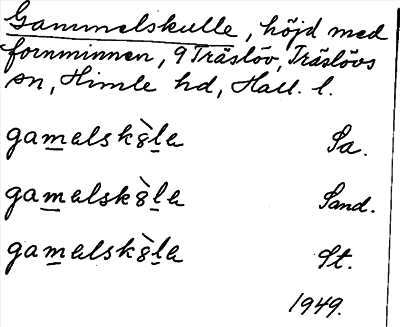 Gammelskulle, höjd med
fornminnen, 9 Träslöv, Träslövs
sn, Himle hd, Hall. l.
gamalsk  Sa.
gamalskὸ̈la Sand.
gamalsk St.
1949.